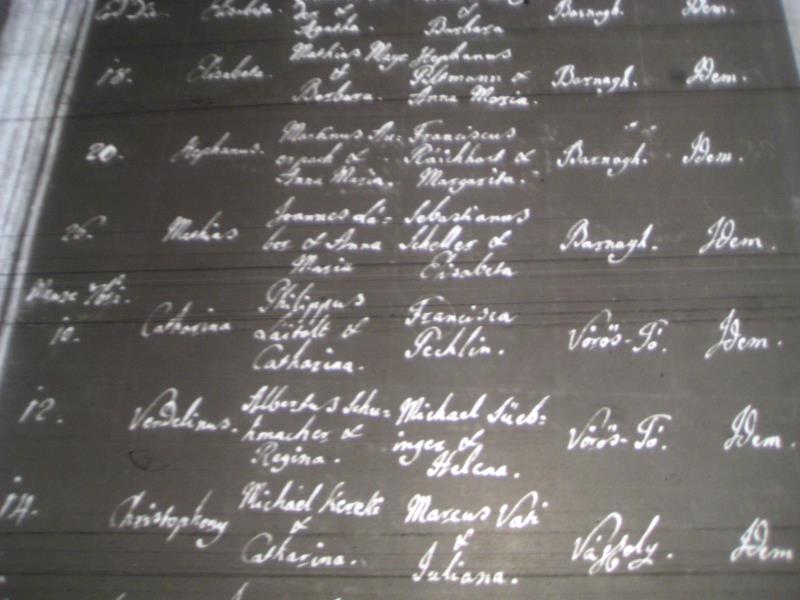 Elisabeta. & & Barnagh. Idem.
Agatha. Barbara
18. Elisabeta. Mathias Mayr Stephanus
& Peltmann & Barnagh. Idem.
Barbara. Anna Maria.
20. Stephanus. Martinus Franciscus
& Raichhart & Barnagh. Idem.
Anna Maria. Margarita.
26. Mathias Joannes Sebastianus
ber & Anna Scheller & Barnagh. Idem.
Maria Elisabeta
Mense
10. Catharina Philippus Francisca
Laitolt & Pechlin. Vörös-Tó. Idem.
Catharina.
12. Vendelinus. Albertus Schu- Michael Süeb-
hmacher & inger & Vörös-Tó. Idem.
Regina. Helena.
14. Christophorus Michael Marcus Vati
& & Vászoly. Idem
Catharina. Juliana.